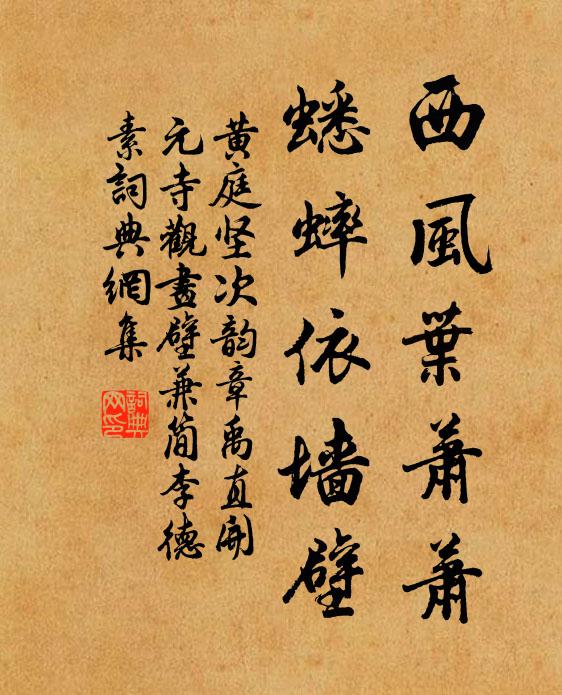 西風葉蕭蕭
蟋蟀依墙壁
黄庭坚次韵章禹直開
元寺觀畫壁兼简李德
素詞典網集
詞典网印